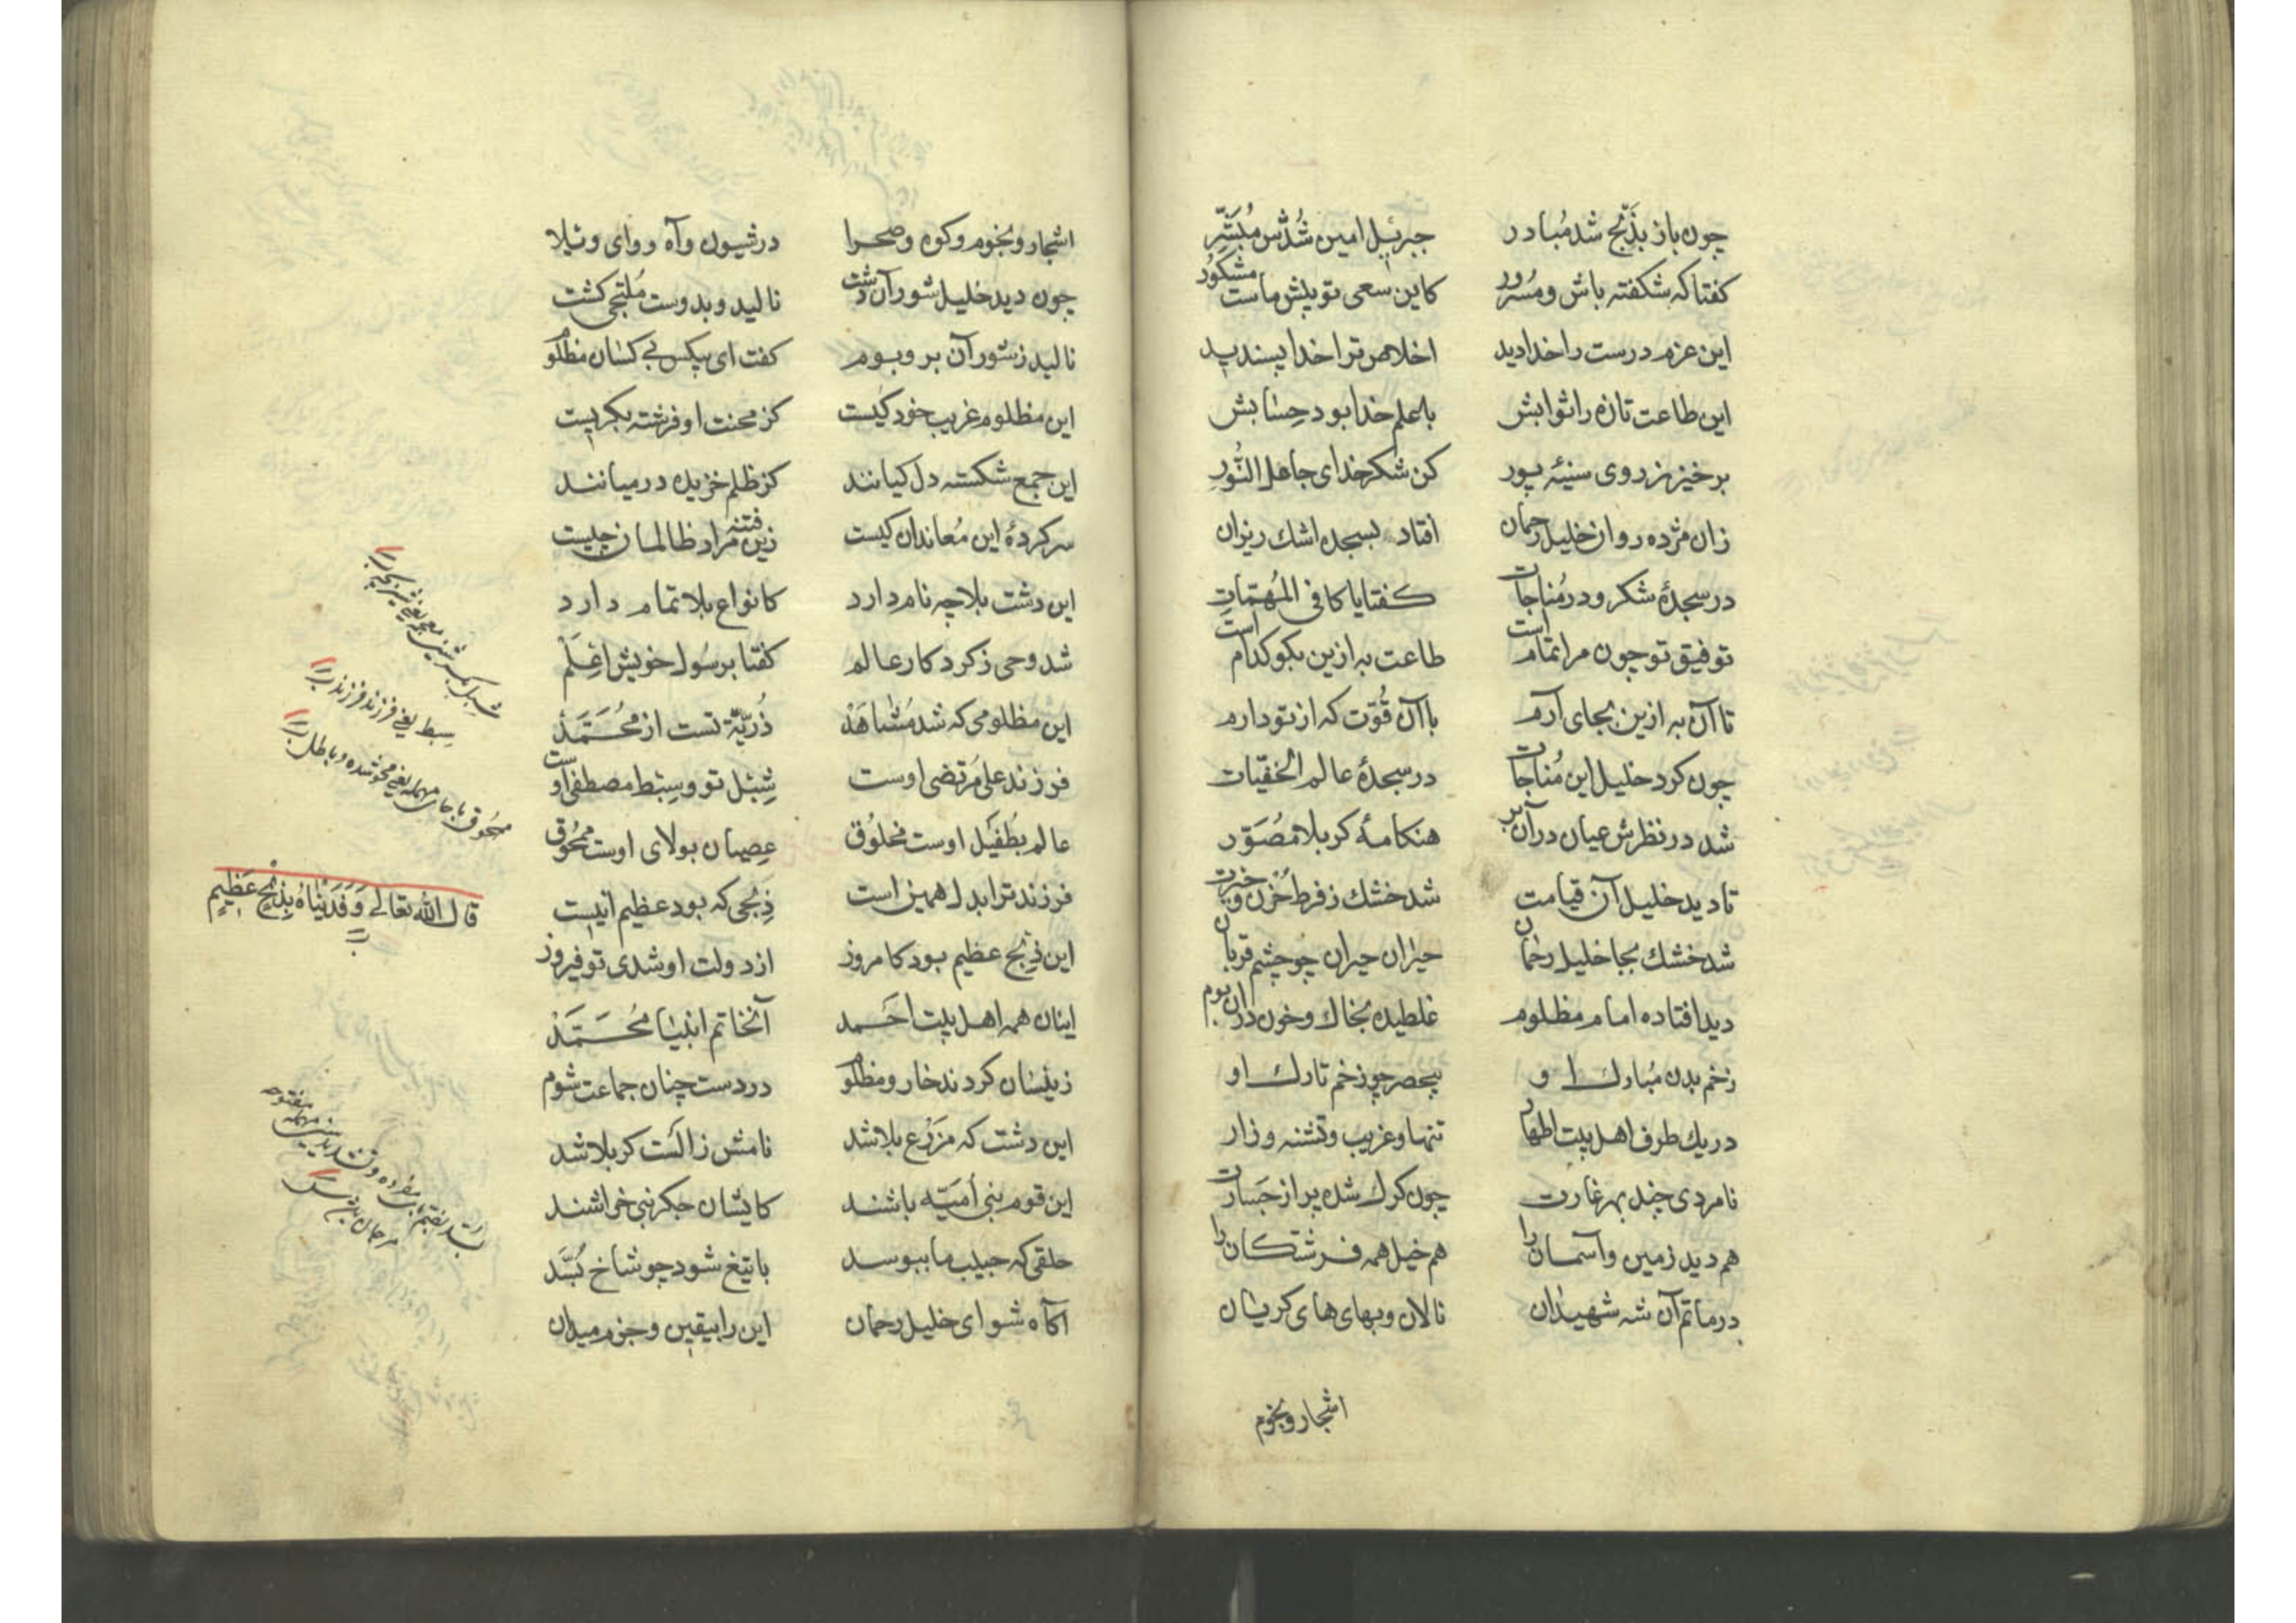 چون باز بذبح شد مبادر جبرئیل امین شدش مبشر
کفتا که شکفته باش و مسرور کاین سعی تو پیش ماست مشکور
این عزم درست را خدا دید اخلاص ترا خدا پسندید
این طاعت تازه را ثوابش با علم خدا بود حسابش
برخیز ز روی سینهٔ پور کن شکر خدای جاعل النور
زان مژده روان خلیل رحمان افتاد بسجده اشک ریزان
در سجدهٔ شکر و در مناجات کفتا یا کافی المهمات
توفیق تو چون مرا تمام است طاعت به ازین بکو کدام است
تا آن به ازین بجای آرم با آن قوت که از تو دارم
چون کرد خلیل این مناجات در سجدهٔ عالم الخفیات
شد در نظرش عیان در آن بر هنکامهٔ کربلا مصور
تا دید خلیل آن قیامت شد خشک ز فرط حزن و حیرت
شد خشک بجا خلیل رحمان حیران حیران چو چشم قربان
دید افتاده امام مظلوم غلطیده بخاک و خون در آن بوم
زخم بدن مبارک او بیحصر چو زخم تارک او
در یک طرف اهل بیت اطهار تنها و غریب و تشنه و زار
نامردی چند بهر غارت چون کرک شده پر از جسارت
هم دید زمین و آسمان را هم خیل همه فرشتکان را
در ماتم آن شه شهیدان نالان و بهای های کریان
اشجار و نجوم
اشجار و نجوم و کوه و صحرا در شیون و آه و وای و ویلا
چون دید خلیل شور آن دشت نالید و بدوست ملتجی کشت
نالید ز شور آن بر و بوم کفت ای بیکس بی کسان مظلوم
این مظلوم غریب خود کیست کز محنت او فرشته بکریست
این جمع شکسته دل کیانند کز ظلم خزیده در میانند
سرکردهٔ این معاندان کیست زین فتنه مراد ظالمان چیست
این دشت بلا چه نام دارد کانواع بلا تمام دارد
شد وحی ز کردکار عالم کفتا برسول خویش اعلم
این مظلومی که شد مشاهد ذریة تست از محمد
فرزند علی مرتضی اوست شبل تو و سبط مصطفی اوست
عالم بطفیل اوست مخلوق عصیان بولای اوست ممحوق
فرزند ترا بدل همین است ذبحی که بود عظیم اینست
این ذبح عظیم بود کامروز از دولت او شدی تو فیروز
اینان همه اهل بیت احمد آنخاتم انبیا محمد
زینسان کردند خار و مظلوم در دست چنان جماعت شوم
این دشت که مزرع بلا شد نامش ز الست کربلا شد
این قوم بنی أمیه باشند کایشان جکر نبی خراشند
حلقی که حبیب ما ببوسد با تیغ شود چو شاخ بسد
آکاه شو ای خلیل رحمان این را بیقین و جزم میدان
سبط یعنی فرزند فرزند
ممحوق با حای مهمله یعنی محو شده و باطل
قال الله تعالی وَفَدَیْنَاهُ بِذِبْحٍ عَظِیمٍ